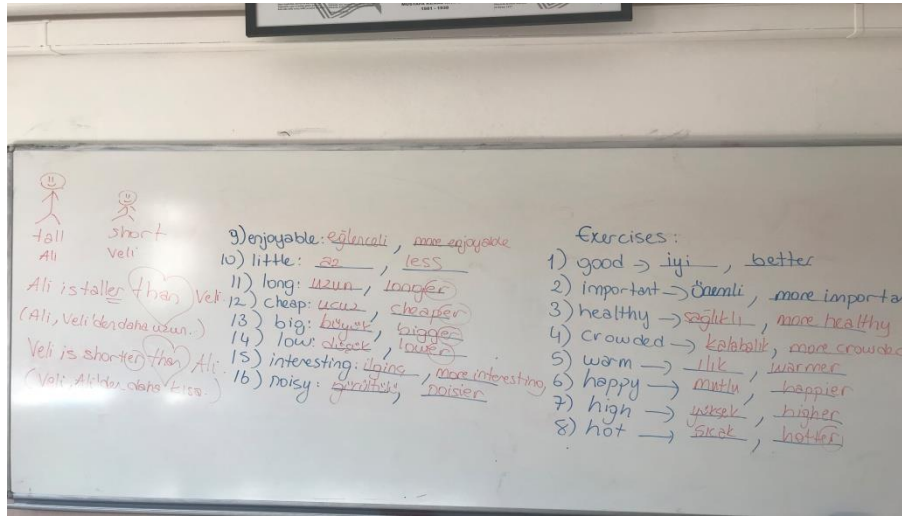 1881 - 1938
tall
Ali
short
Veli
Ali is taller than Veli
(Ali, Veli'den daha uzun.)
Veli is shorter than Ali.
(Veli, Ali'den daha kısa.)
9) enjoyable: eğlenceli, more enjoyable
10) little: az, less
11) long: uzun, longer
12) cheap: ucuz, cheaper
13) big: büyük, bigger
14) low: düşük, lower
15) interesting: ilginç, more interesting
16) noisy: gürültülü, noisier
Exercises:
1) good → iyi, better
2) important → önemli, more importa
3) healthy → sağlıklı, more healthy
4) crowded → kalabalık, more crowded
5) warm → ılık, warmer
6) happy → mutlu, happier
7) high → yüksek, higher
8) hot → sıcak, hotter